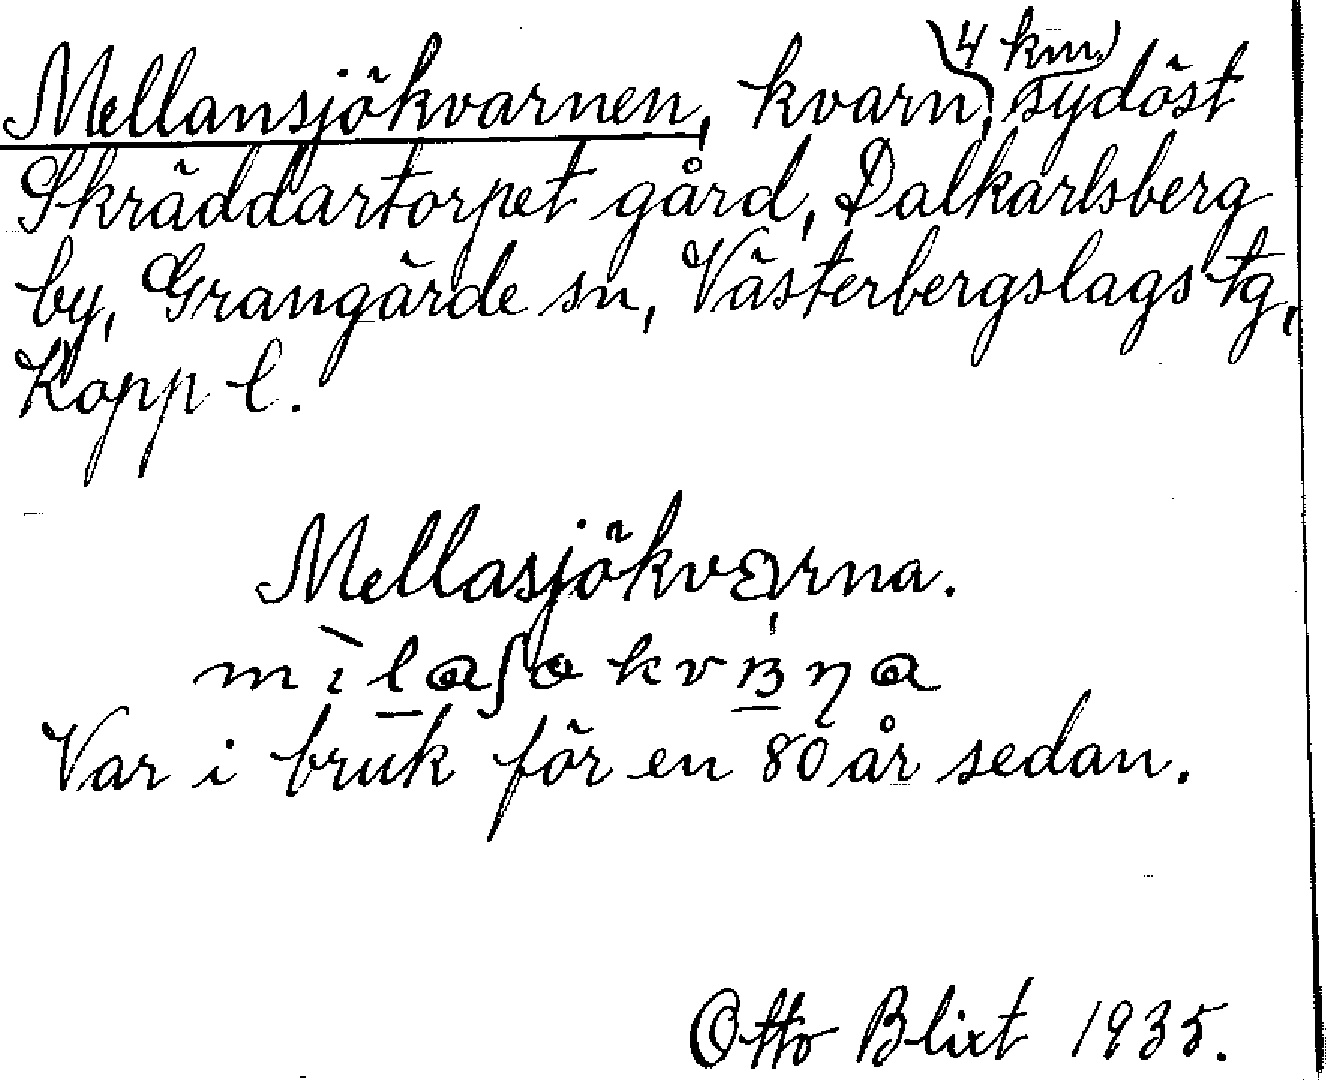 Mellansjökvarnen, kvarn, 4 km sydöst
Skräddartorpet gård, Dalkarlsberg
by, Grangärde sn, Västerbergslags tg,
Kopp l.
Mellasjökvarna.
Var i bruk för en 80 år sedan.
Otto Blixt 1935.